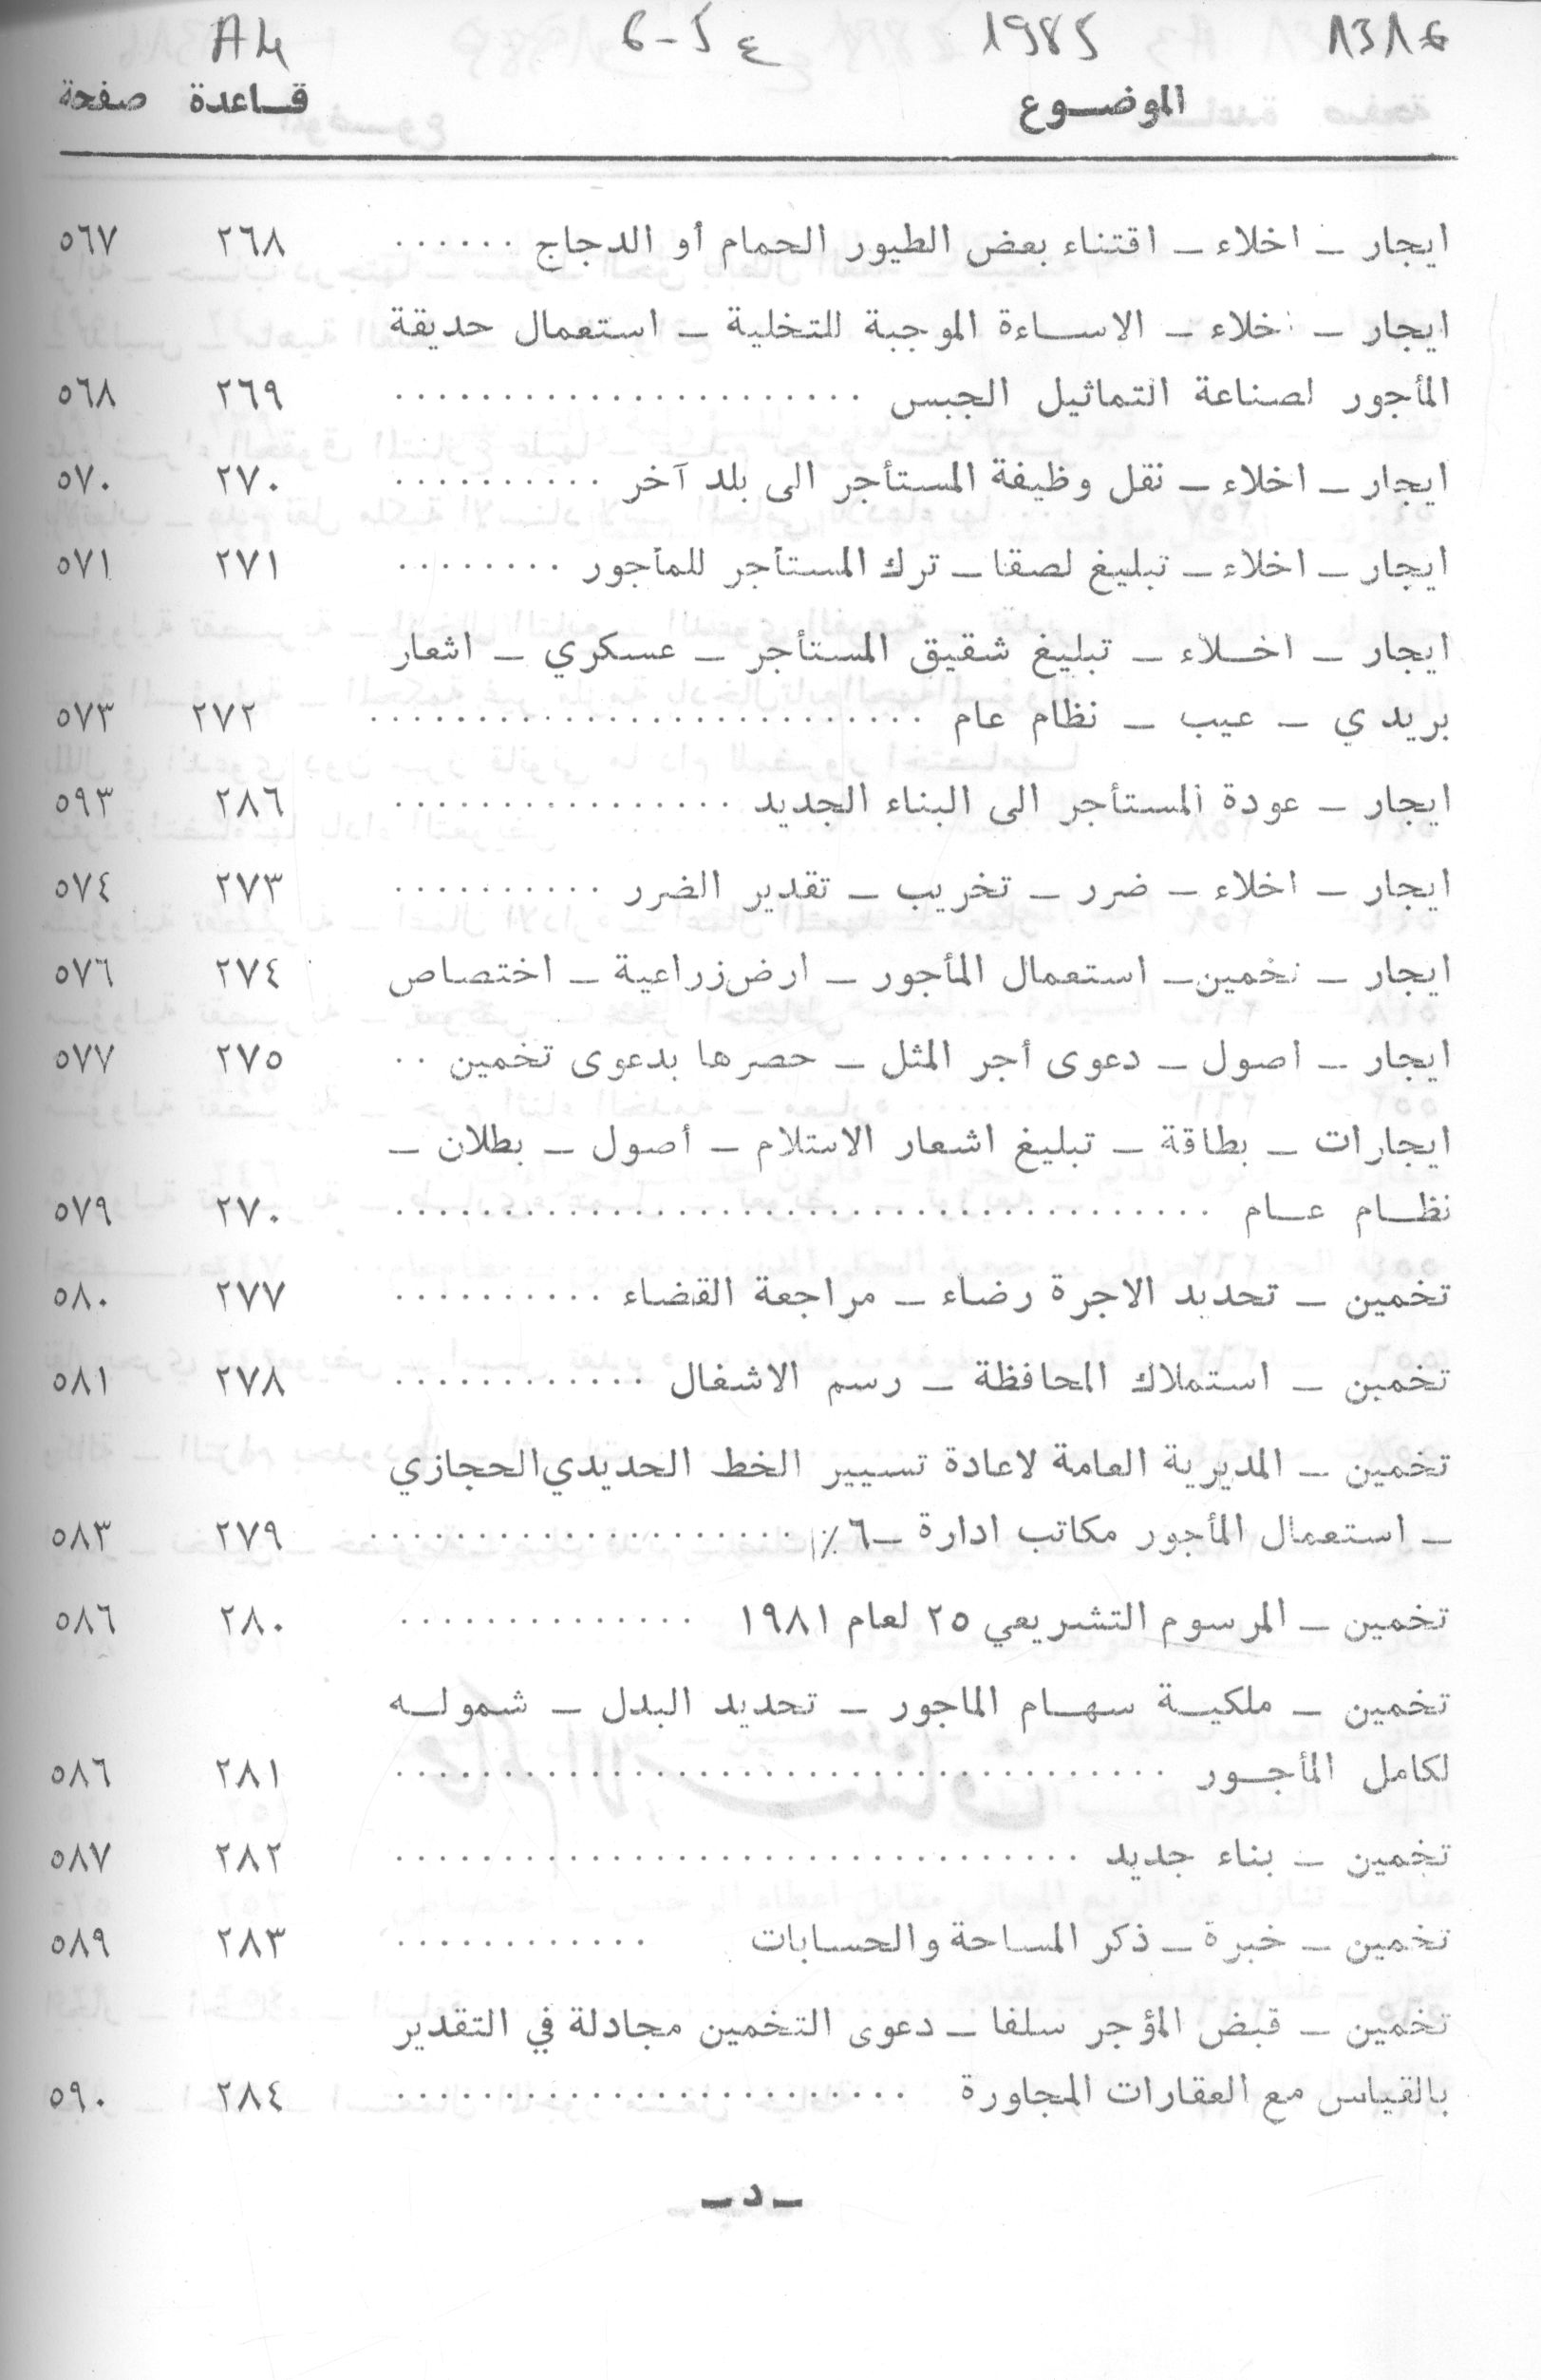 1316 1985 6-5 ع A4
الموضـــوع قـاعدة صفحة
ايجار ــ اخلاء ــ اقتناء بعض الطيور الحمام أو الدجاج ...... ٢٦٨ ٥٦٧
ايجار ــ خلاء ــ الاساءة الموجبة للتخلية ــ استعمال حديقة
المأجور لصناعة التماثيل الجبس ...................... ٢٦٩ ٥٦٨
ايجار ــ اخلاء ــ نقل وظيفة المستأجر الى بلد آخر .......... ٢٧٠ ٥٧٠
ايجار ــ اخلاء ــ تبليغ لصقا ــ ترك المستأجر للمأجور ........ ٢٧١ ٥٧١
ايجار ــ اخلاء ــ تبليغ شقيق المستأجر ــ عسكري ــ اشعار
بريدي ــ عيب ــ نظام عام .......................... ٢٧٢ ٥٧٣
ايجار ــ عودة المستأجر الى البناء الجديد ................ ٢٨٦ ٥٩٣
ايجار ــ اخلاء ــ ضرر ــ تخريب ــ تقدير الضرر .......... ٢٧٣ ٥٧٤
ايجار ــ تخمين ــ استعمال المأجور ــ ارض زراعية ــ اختصاص ٢٧٤ ٥٧٦
ايجار ــ اصول ــ دعوى أجر المثل ــ حصرها بدعوى تخمين .. ٢٧٥ ٥٧٧
ايجارات ــ بطاقة ــ تبليغ اشعار الاستلام ــ أصول ــ بطلان ــ
نظـــام عـــام ...................................... ٢٧٠ ٥٧٩
تخمين ــ تحديد الاجرة رضاء ــ مراجعة القضاء .......... ٢٧٧ ٥٨٠
تخمين ــ استملاك المحافظة ــ رسم الاشغال ............ ٢٧٨ ٥٨١
تخمين ــ المديرية العامة لاعادة تسيير الخط الحديدي الحجازي
ــ استعمال المأجور مكاتب ادارة ــ ٦٪ .................... ٢٧٩ ٥٨٣
تخمين ــ المرسوم التشريعي ٢٥ لعام ١٩٨١ .............. ٢٨٠ ٥٨٦
تخمين ــ ملكيــة سهــام الماجور ــ تحديد البدل ــ شمولــه
لكامل المأجــور .................................... ٢٨١ ٥٨٦
تخمين ــ بناء جديد ................................ ٢٨٢ ٥٨٧
تخمين ــ خبرة ــ ذكر المساحة والحسابات ............ ٢٨٣ ٥٨٩
تخمين ــ قبض المؤجر سلفا ــ دعوى التخمين مجادلة في التقدير
بالقياس مع العقارات المجاورة ........................ ٢٨٤ ٥٩٠
ــ د ــ